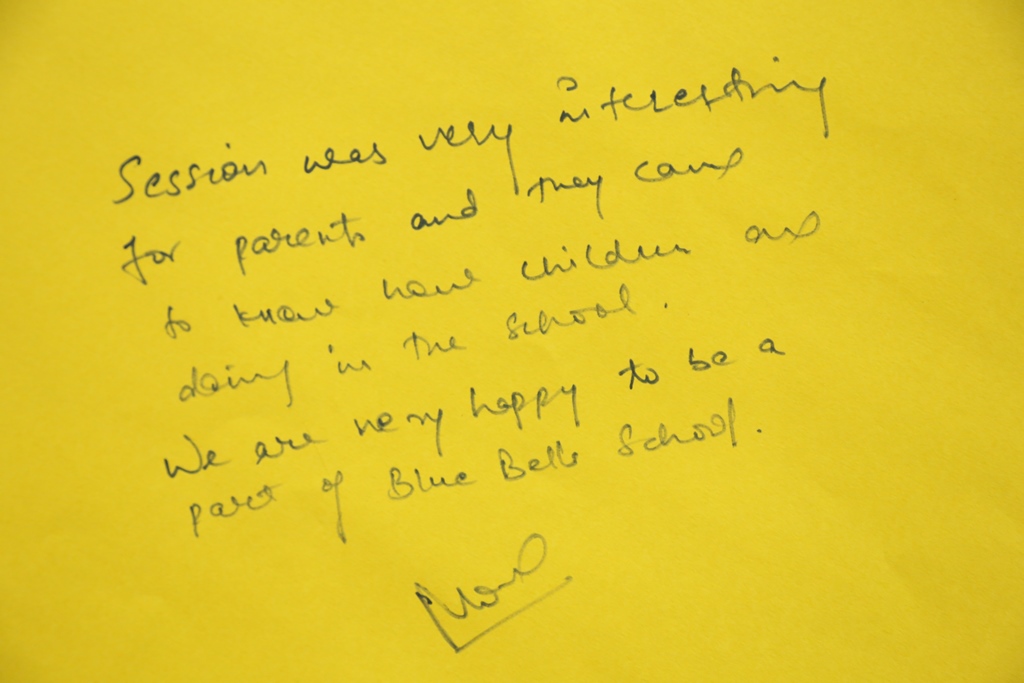 Session was very interesting
for parents and they came
to know how children are
doing in the school.
We are very happy to be a
part of Blue Bells School.